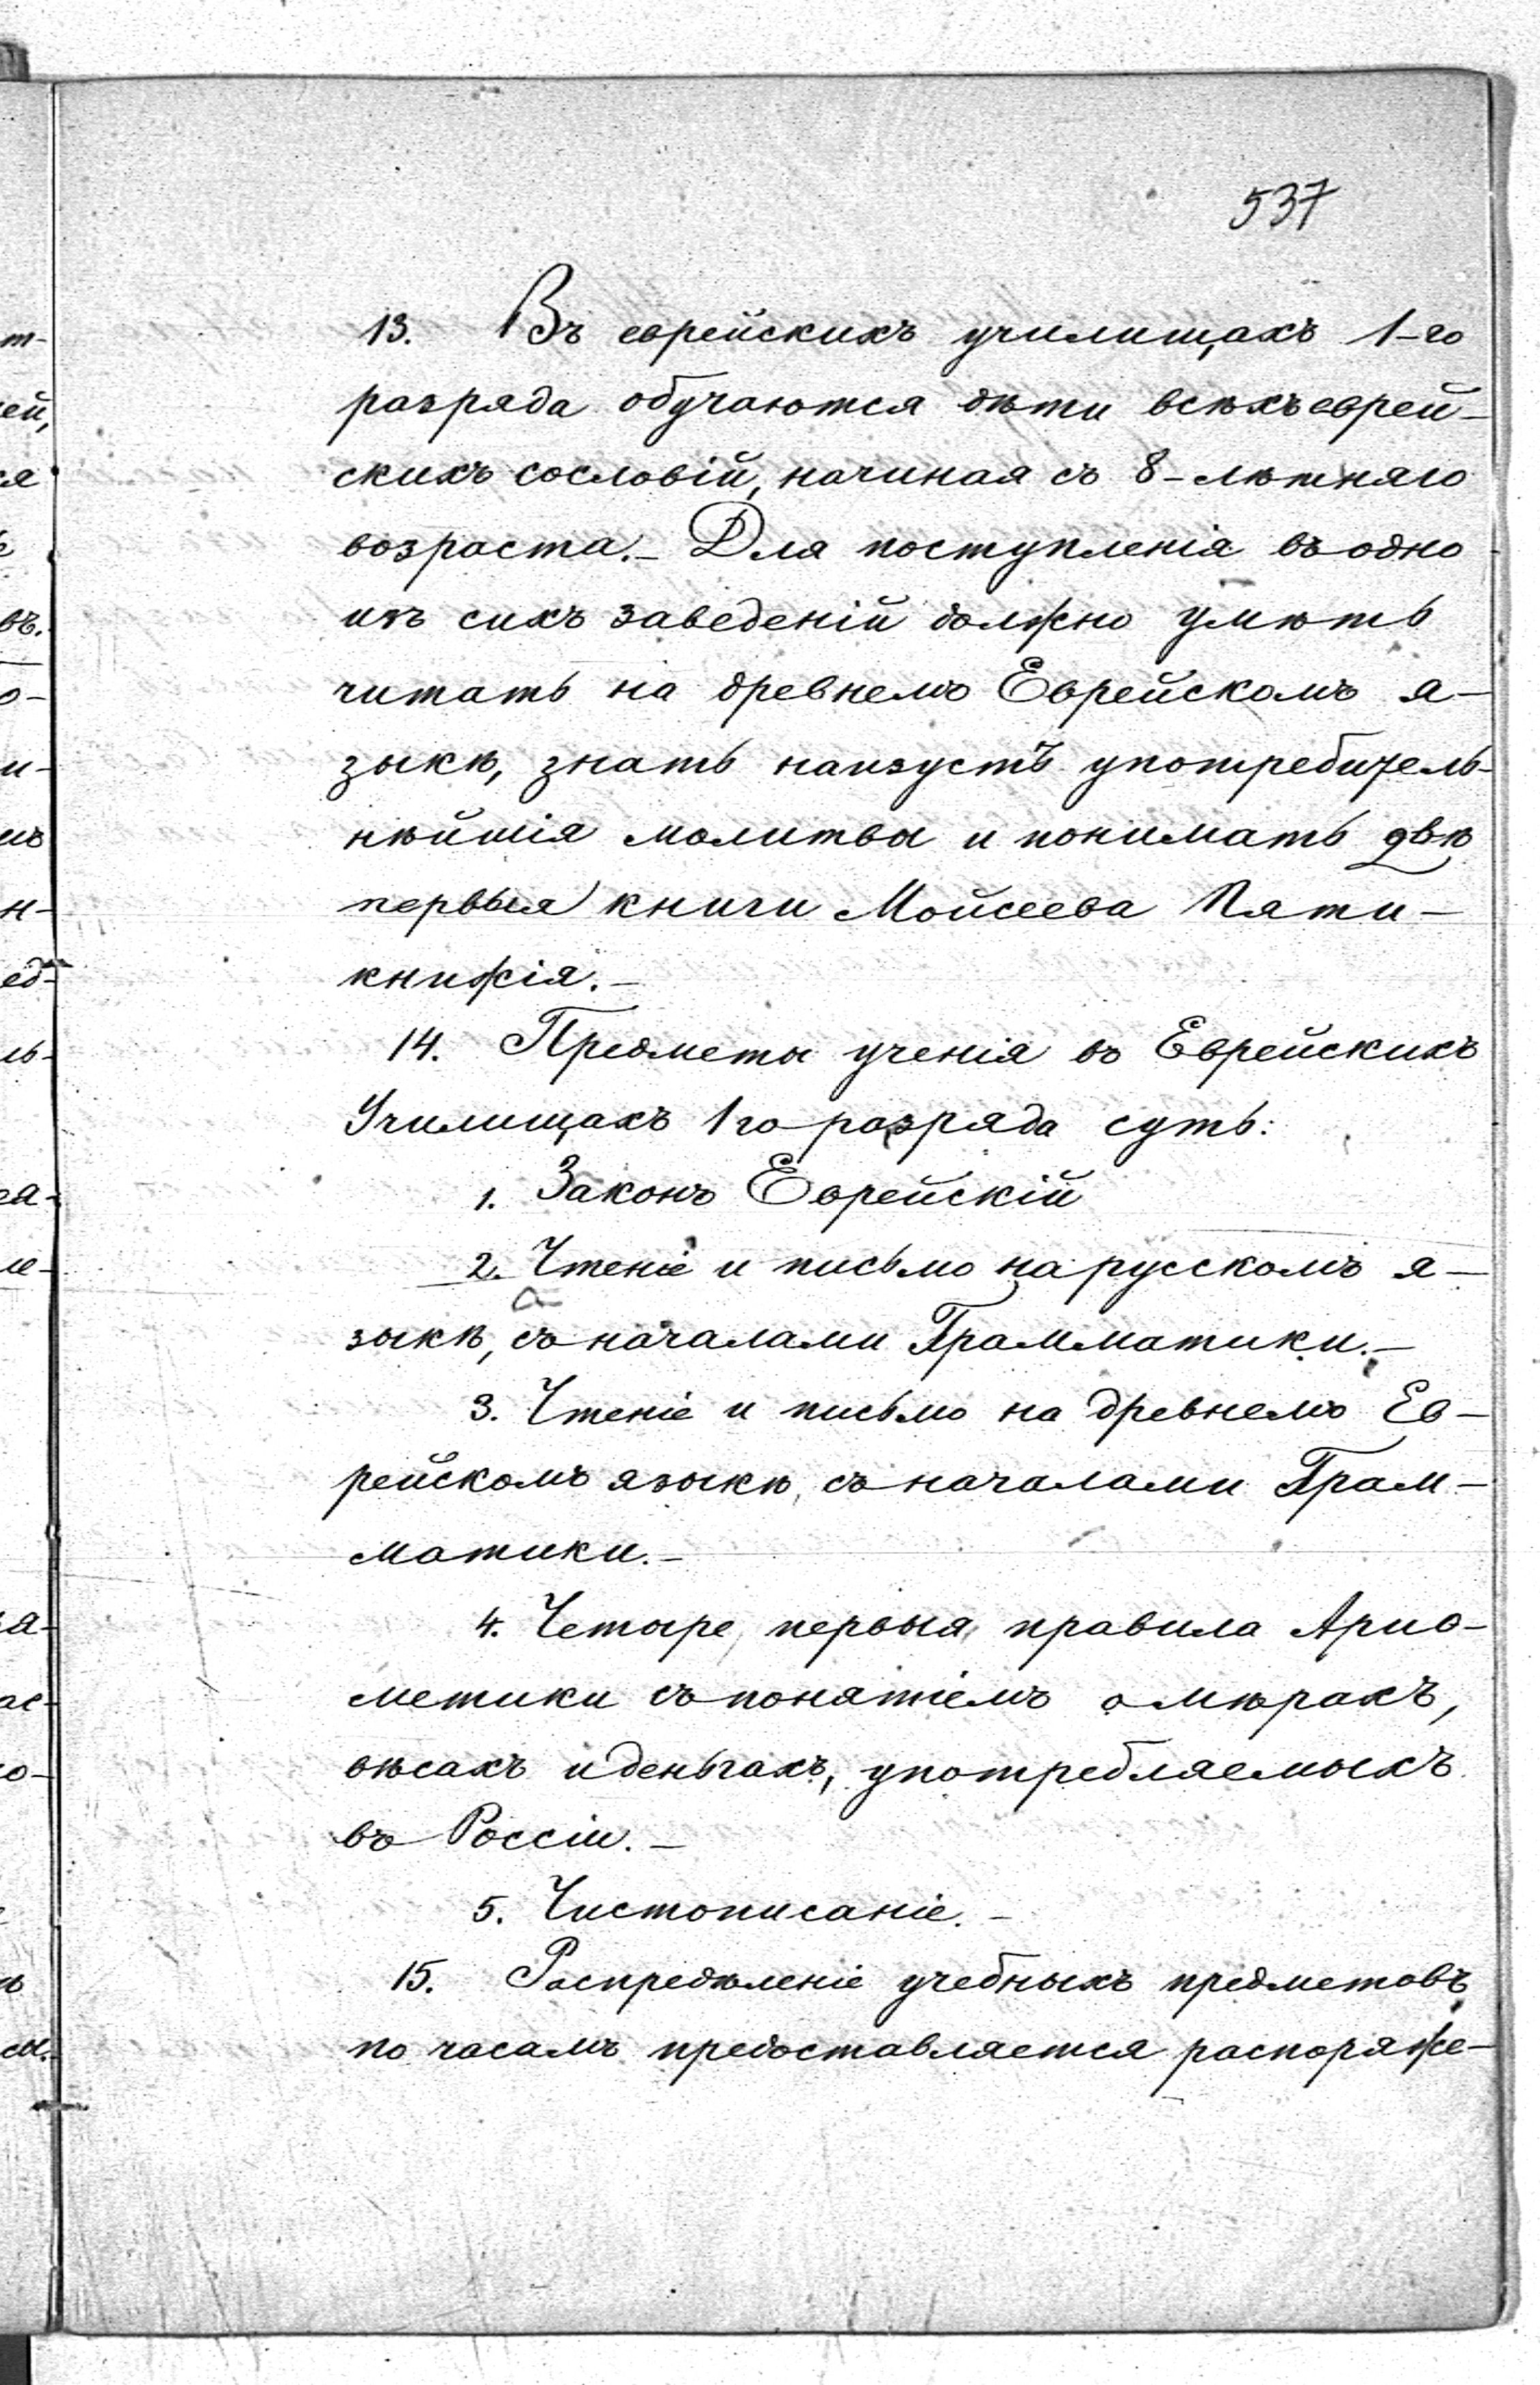 537
13. Въ еврейскихъ училищахъ 1-го
разряда обучаются дѣти всѣхъ еврей-
скихъ сословій, начиная съ 8-лѣтняго
возраста.- Для поступленія въ одно
изъ сихъ заведеній должно умѣть
читать на древнемъ Еврейскомъ я-
зыкѣ, знать наизустъ употребитель-
нѣйшія молитвы и понимать двѣ
первыя книги Мойсеева Пяти-
книжія.-
14. Предметы ученія въ Еврейскихъ
Училищахъ 1го разряда суть:
1. Законъ Еврейскій
2. Чтеніе и письмо на русскомъ я-
зыкѣ, съ началами Грамматики.-
3. Чтеніе и письмо на древнемъ Ев-
рейскомъ языкѣ, съ началами Грам-
матики.-
4. Четыре первыя правила Ариѳ-
метики съ понятіемъ о мѣрахъ,
вѣсахъ и деньгахъ, употребляемыхъ
въ Россіи.-
5. Чистописаніе.-
15. Распредѣленіе учебныхъ предметовъ
по часамъ предоставляется распоряже-